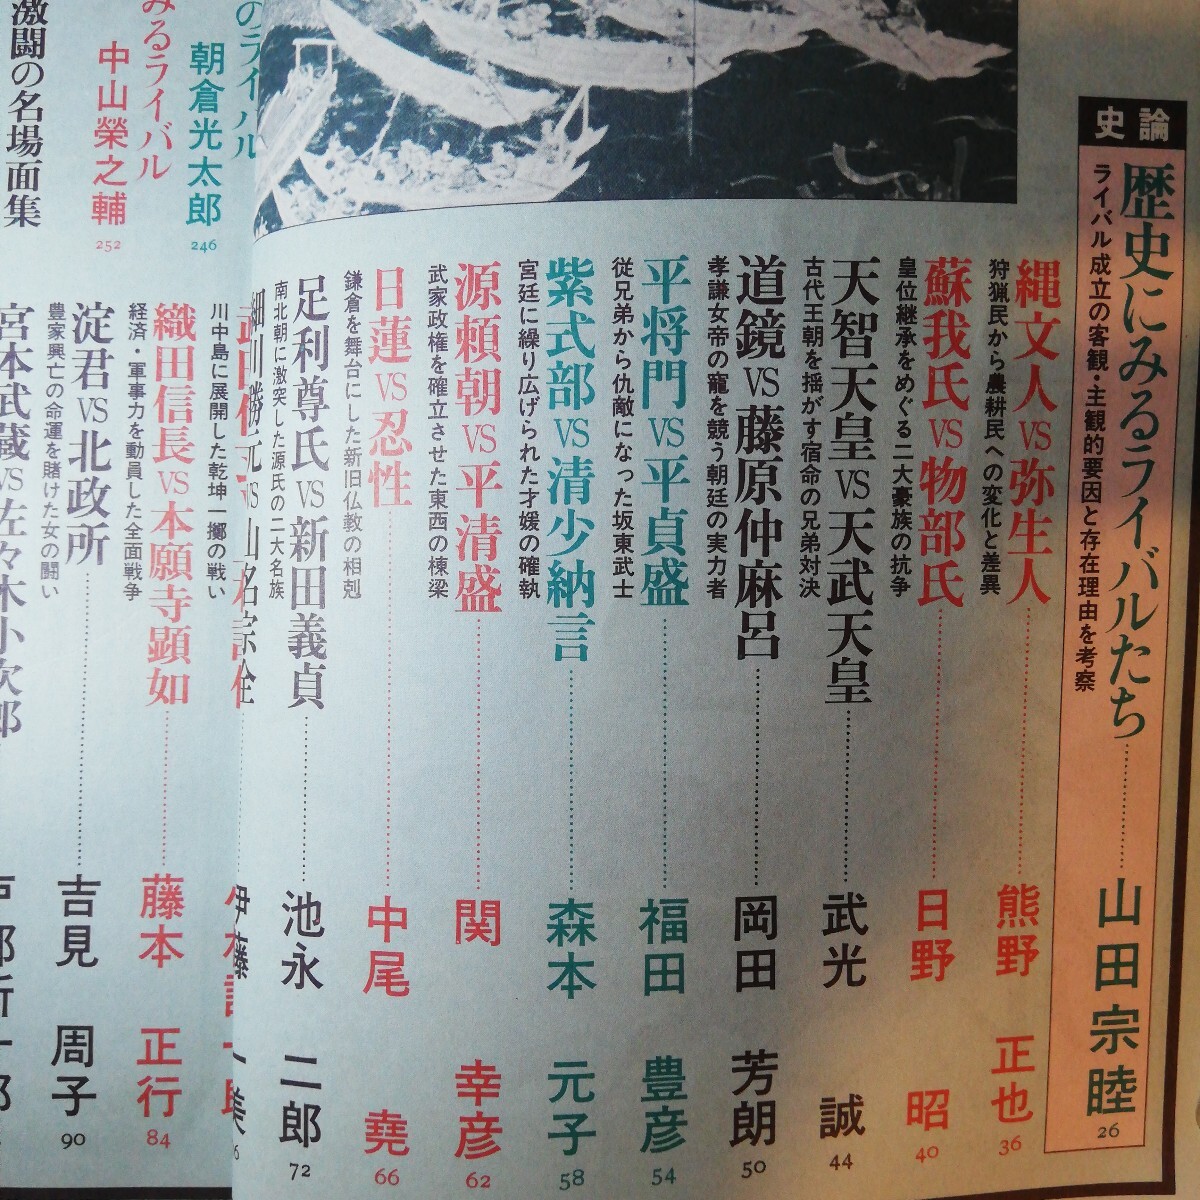 史論
歴史にみるライバルたち 山田宗睦 26
ライバル成立の客観・主観的要因と存在理由を考察
縄文人VS弥生人 熊野 正也 36
狩猟民から農耕民への変化と差異
蘇我氏VS物部氏 日野 昭 40
皇位継承をめぐる二大豪族の抗争
天智天皇VS天武天皇 武光 誠 44
古代王朝を揺がす宿命の兄弟対決
道鏡VS藤原仲麻呂 岡田 芳朗 50
孝謙女帝の寵を競う朝廷の実力者
平将門VS平貞盛 福田 豊彦 54
従兄弟から仇敵になった坂東武士
紫式部VS清少納言 森本 元子 58
宮廷に繰り広げられた才媛の確執
源頼朝VS平清盛 関 幸彦 62
武家政権を確立させた東西の棟梁
日蓮VS忍性 中尾 堯 66
鎌倉を舞台にした新旧仏教の相剋
足利尊氏VS新田義貞 池永 二郎 72
南北朝に激突した源氏の二大名族
細川勝元VS山名宗全 伊藤 一美 76
川中島に展開した乾坤一擲の戦い
織田信長VS本願寺顕如 藤本 正行 84
経済・軍事力を動員した全面戦争
淀君VS北政所 吉見 周子 90
豊家興亡の命運を賭けた女の闘い
宮本武蔵VS佐々木小次郎
のライバル
朝倉光太郎 246
みるライバル
中山榮之輔 252
激闘の名場面集